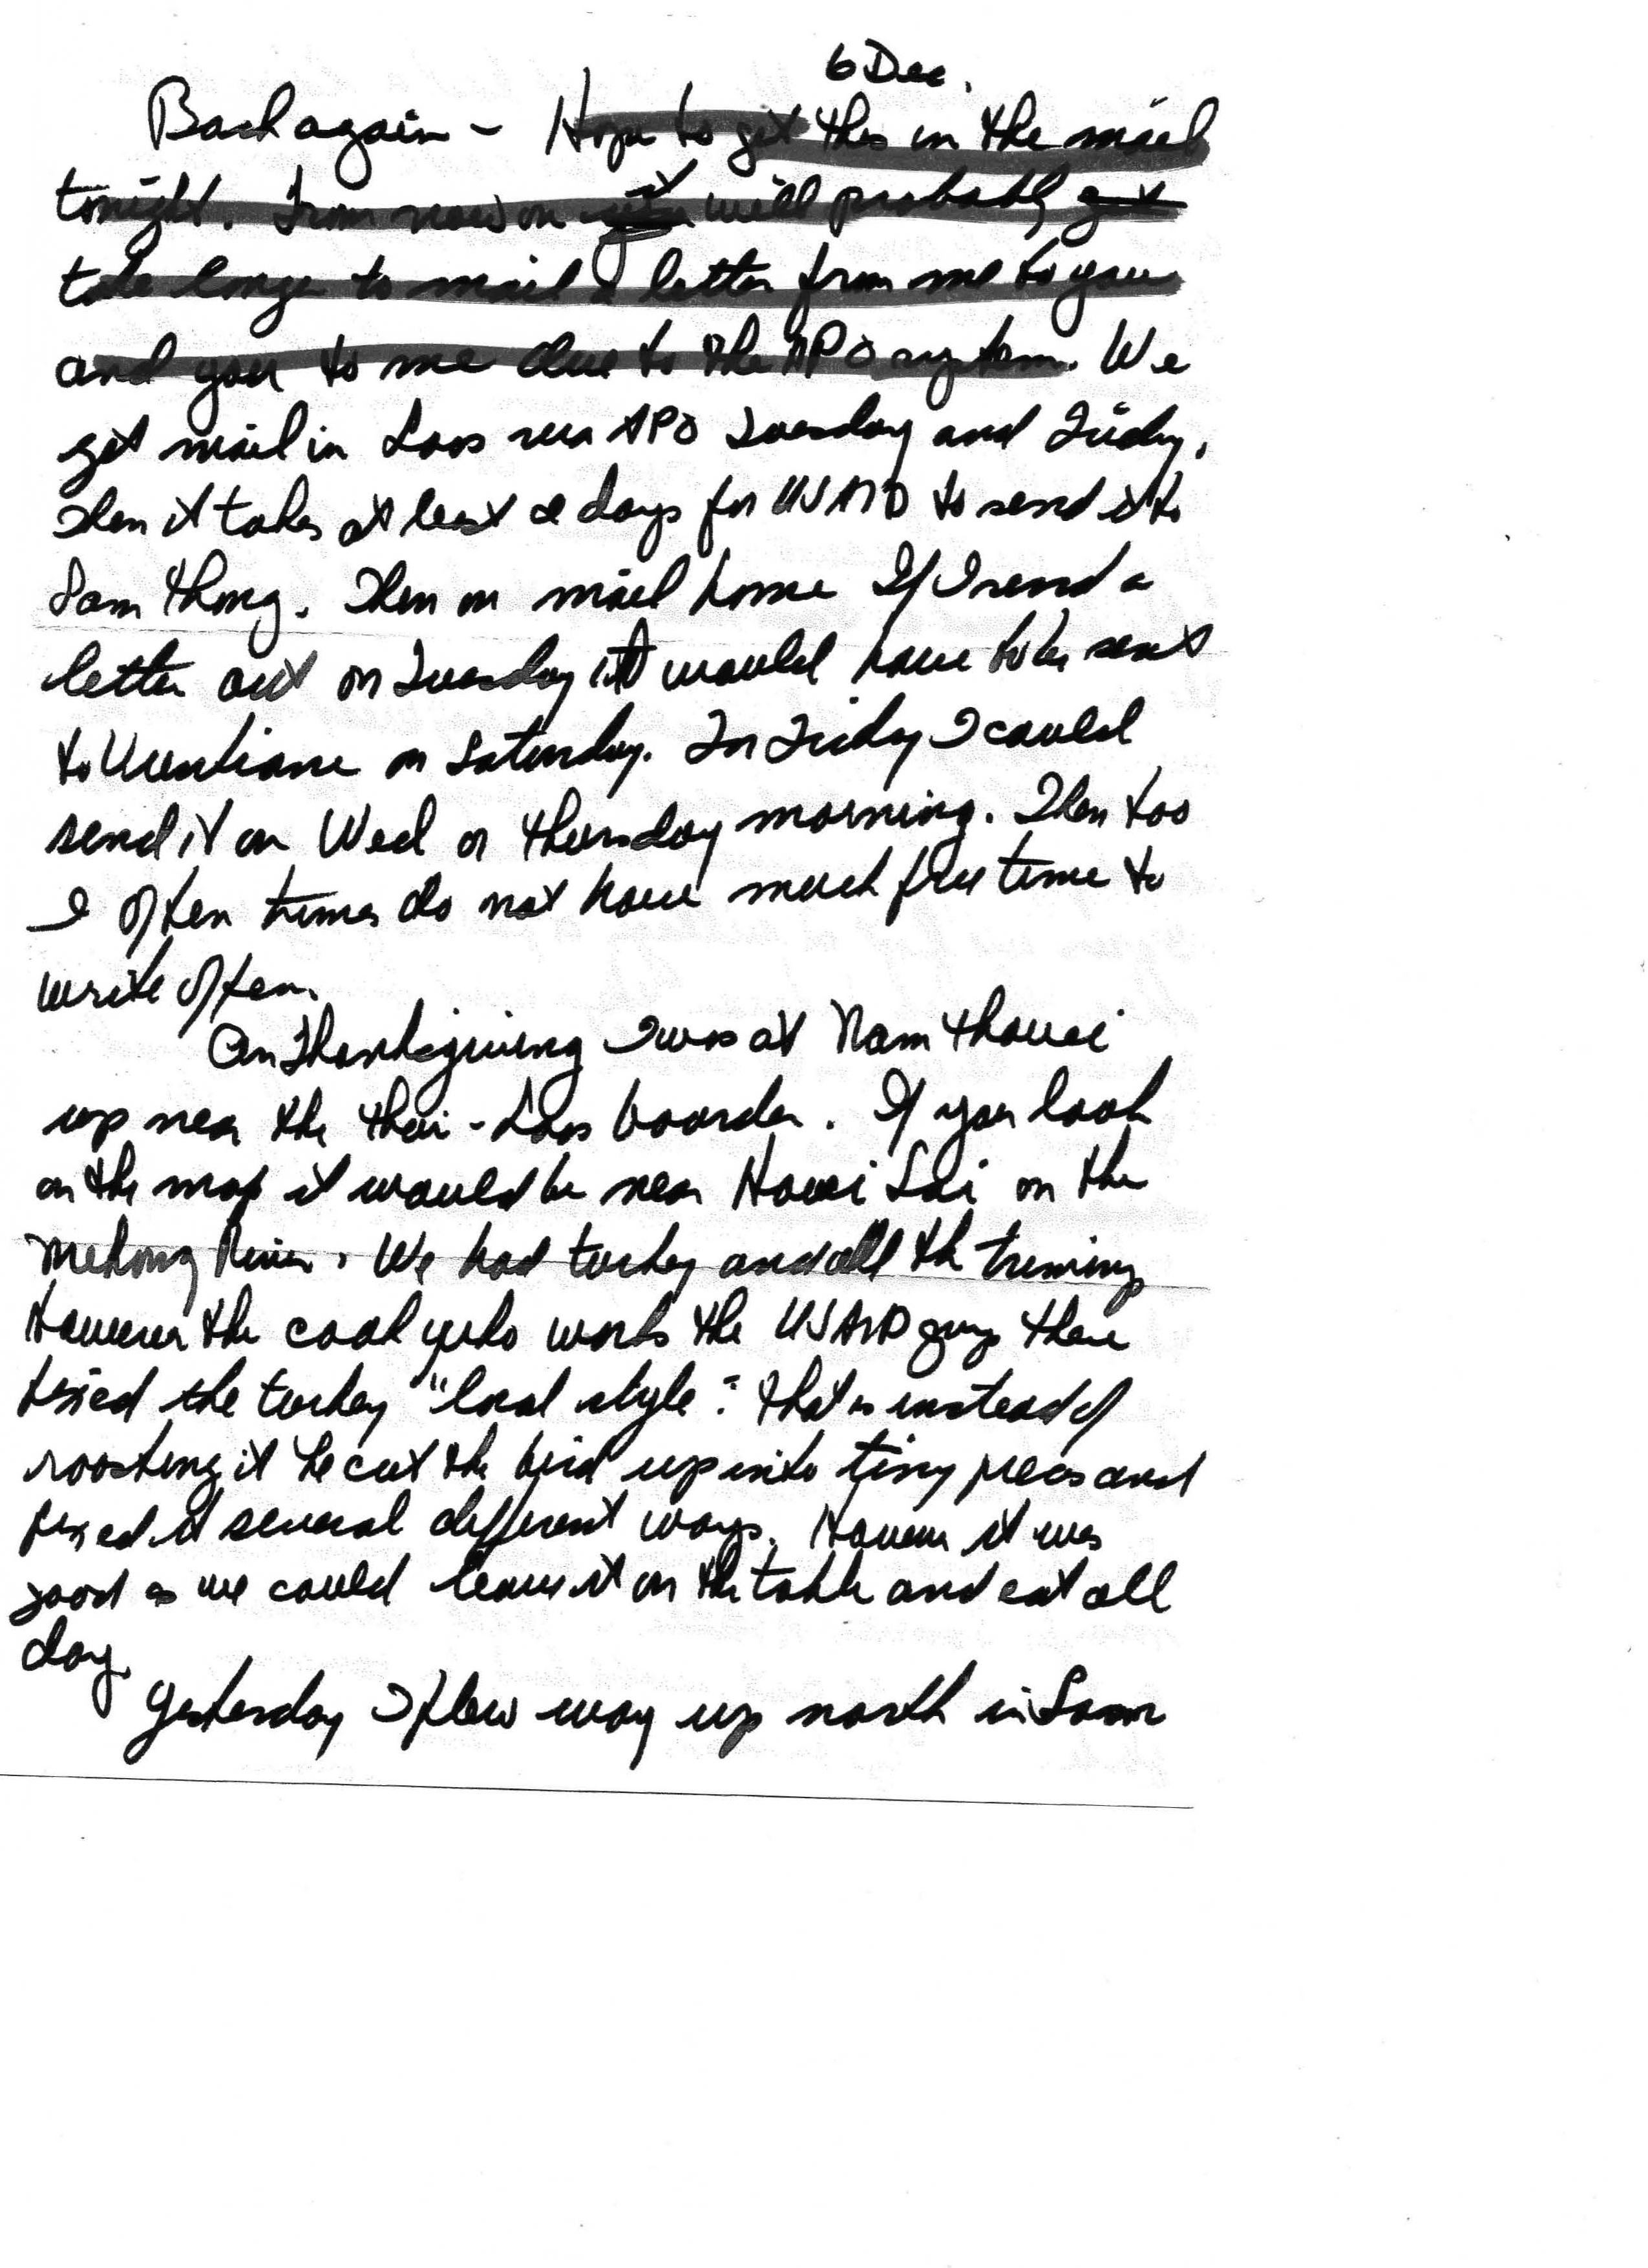 6 Dec.
Back again - Hope to get this in the mail
tonight. From now on it will probably get
take longer to mail a letter from me to you
and you to me due to the APO system. We
get mail in Laos via APO Tuesday and Friday.
Then it takes at least 2 days for USAID to send it to
Sam Thong. Then on mail home If I send a
letter out on Tuesday it would have to be sent
to Vientiane on Saturday. For Friday I could
send it on Wed or Thursday morning. Then too
I often times do not have much free time to
write often.
On Thanksgiving I was at Nam Thouei
up near the Thai-Laos boarder. If you look
on the map it would be near Houei Sai on the
Mekong River. We had turkey and all th triming
However the cook who works the USAID guys there
fixed the turkey "local style". That is instead of
roasting it he cut the bird up into tiny pieces and
fixed it several different ways. However it was
good as we could leave it on the table and eat all
day.
Yesterday I flew way up north in Laos